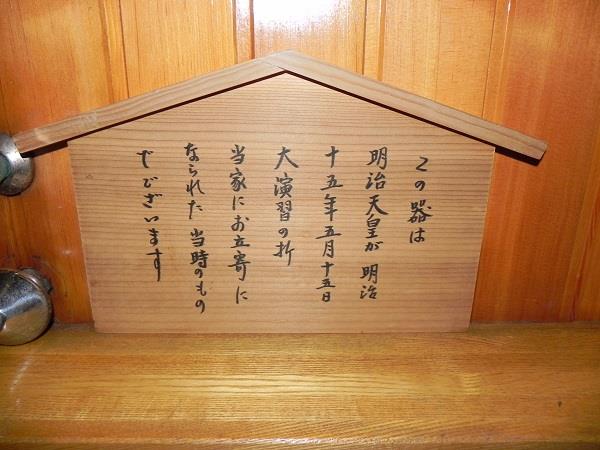 この器は
明治天皇が明治
十五年五月十五日
大演習の折
当家にお立寄に
なられた当時のもの
でございます